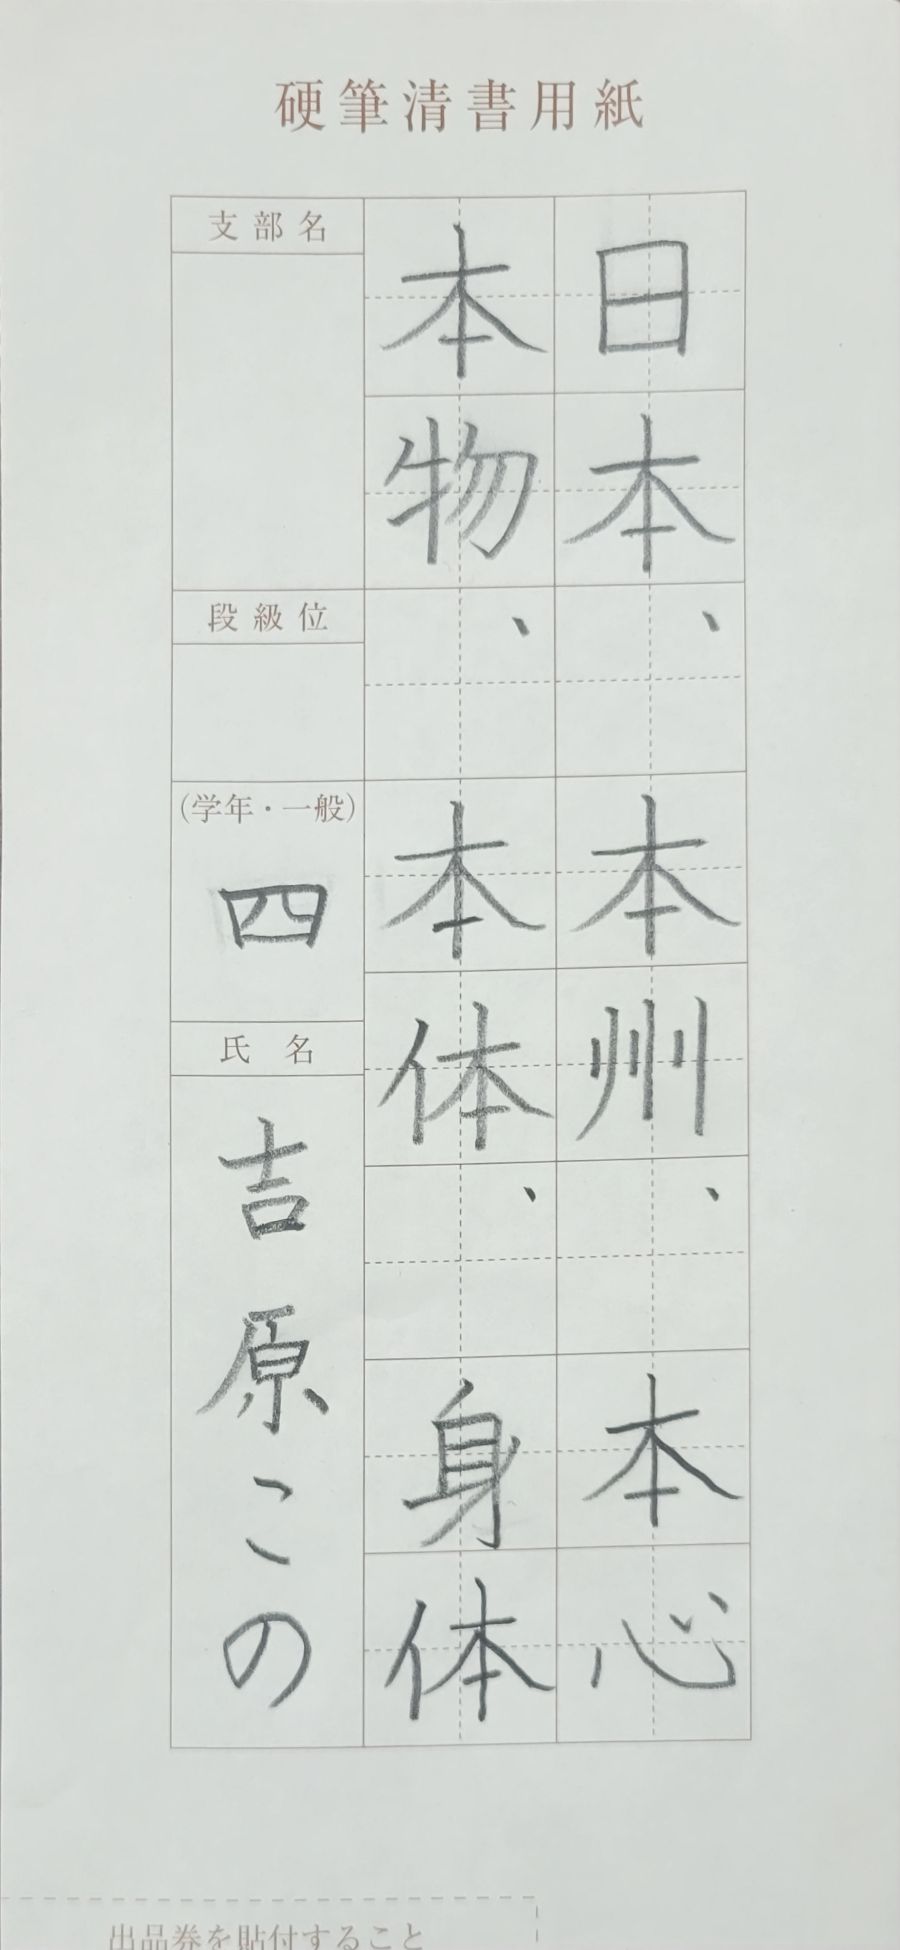 硬筆清書用紙
日本、本州、本心
本物、本体、身体
支部名
段級位
(学年・一般)
四
氏名
吉原この
出品券を貼付すること